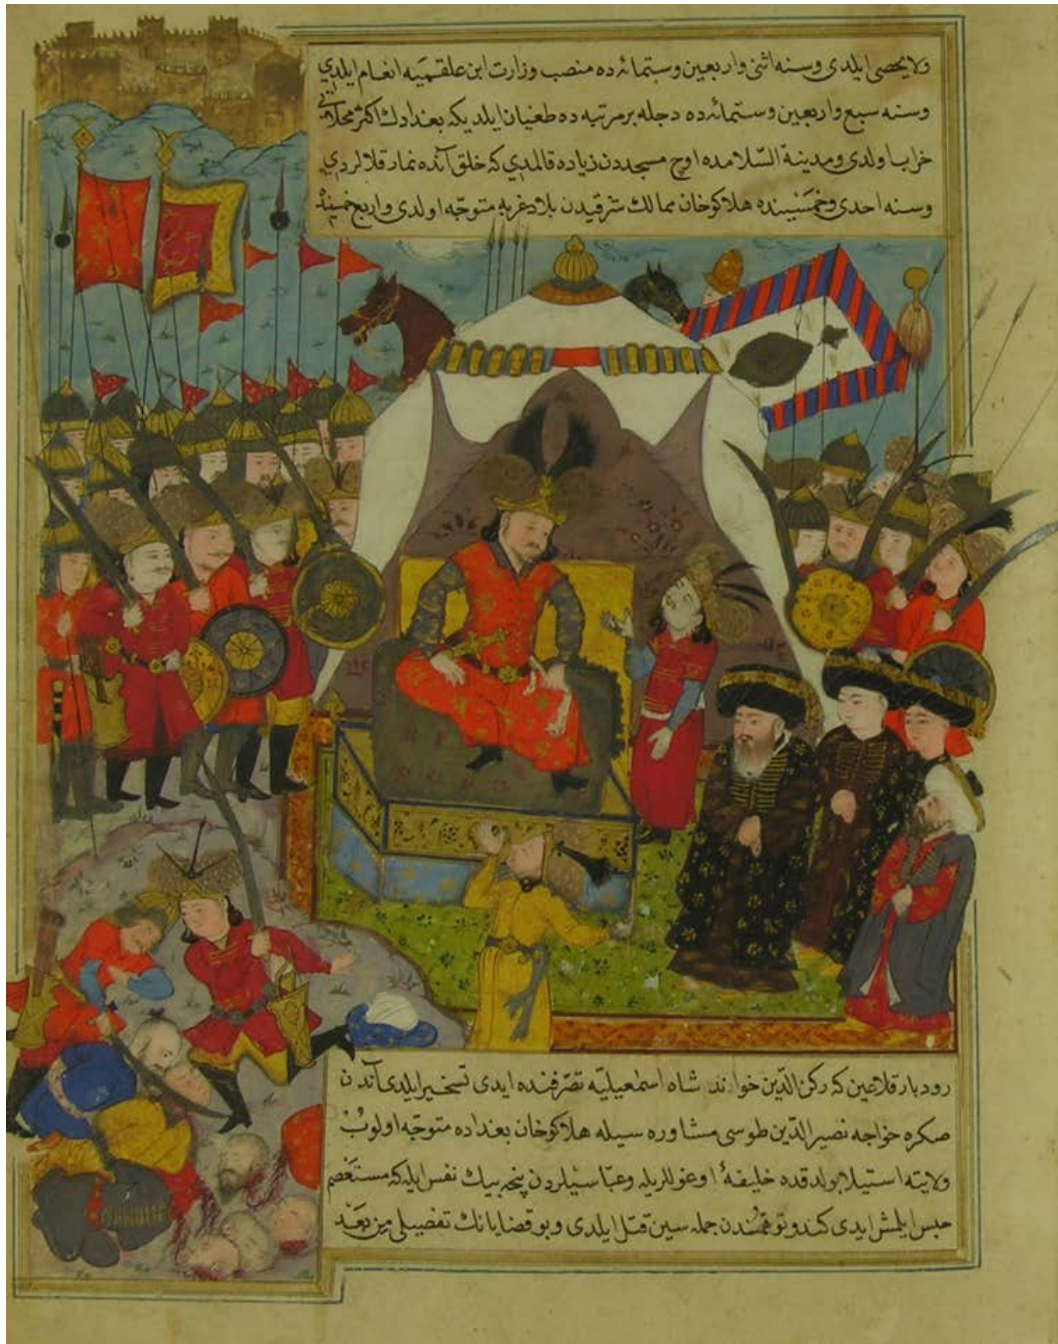 ولايحصى ايلدى وسنه اثنى واربعين وستمائه ده منصب وزارت ابن علقميه انعام ايلدي
وسنه سبع واربعين وستمائه ده دجله بر مرتبه ده طغيان ايلديكه بغدادك اكثر محلاتى
خراب اولدى ومدينة السّلامده اوچ مسجددن زياده قالمدي كه خلق آنده نماز قلالردي
وسنه احدى وخمسينده هلاكوخان ممالك شرقيدن بلاد غربه متوجّه اولدى واربع خمسينده
رودبار قلاعين كه ركن الدّين خواند شاه اسمعيليّه تصرّفنده ايدى تسخير ايلدى آندن
صكره خواجه نصير الدّين طوسى مشاوره سيله هلاكوخان بغداده متوجّه اولوبْ
ولايته استيلا بولدقده خليفهٔ اوغوللريله وعبّاسيلردن پنجه بيك نفس ايله كه مستعصم
حبس ايلمش ايدى كندو جمله سين قتل ايلدى وبو قضايانك تفصيلى من بَعْد